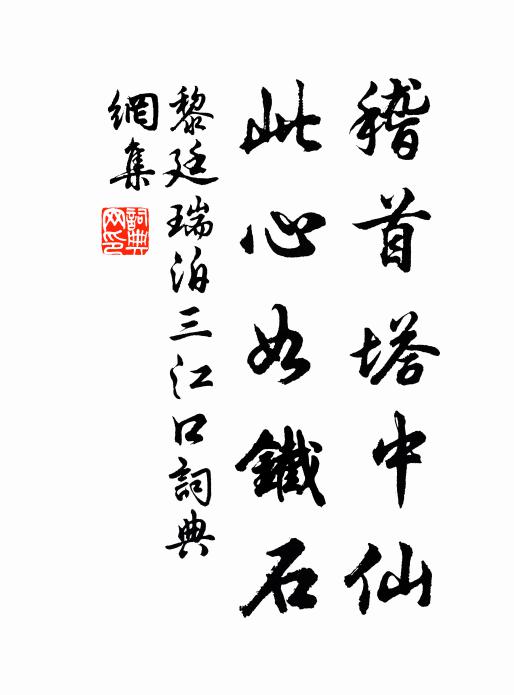 稽首塔中仙
此心如鐵石
黎廷瑞泊三江口詞典
網集
詞典
网印